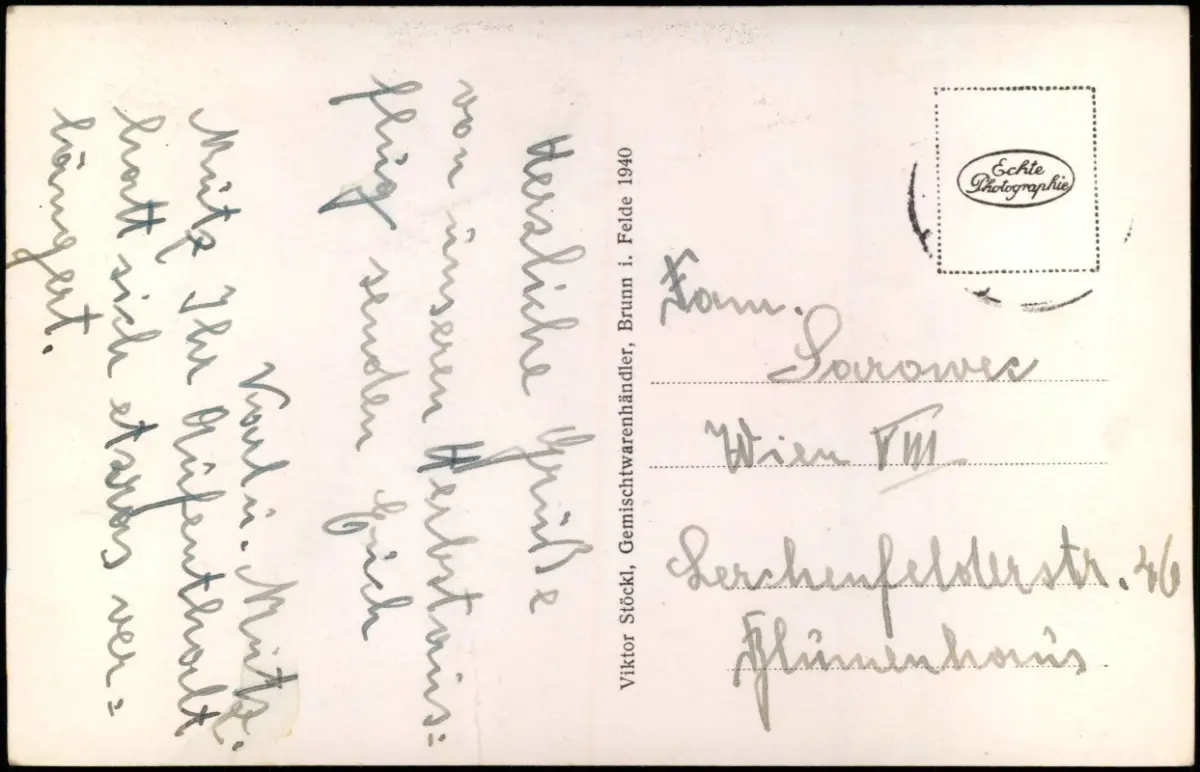 Herzliche Grüße
von unseren Herbstaus=
flug senden Euch
Karl u. Mitzi.
Mitz Ihr Aufenthalt
hatt sich etwas ver=
längert.
Viktor Stöckl, Gemischtwarenhändler, Brunn i. Felde 1940
Echte
Photographie
Fam.
Wien VIII
Lerchenfelderstr. 46
Blumenhaus